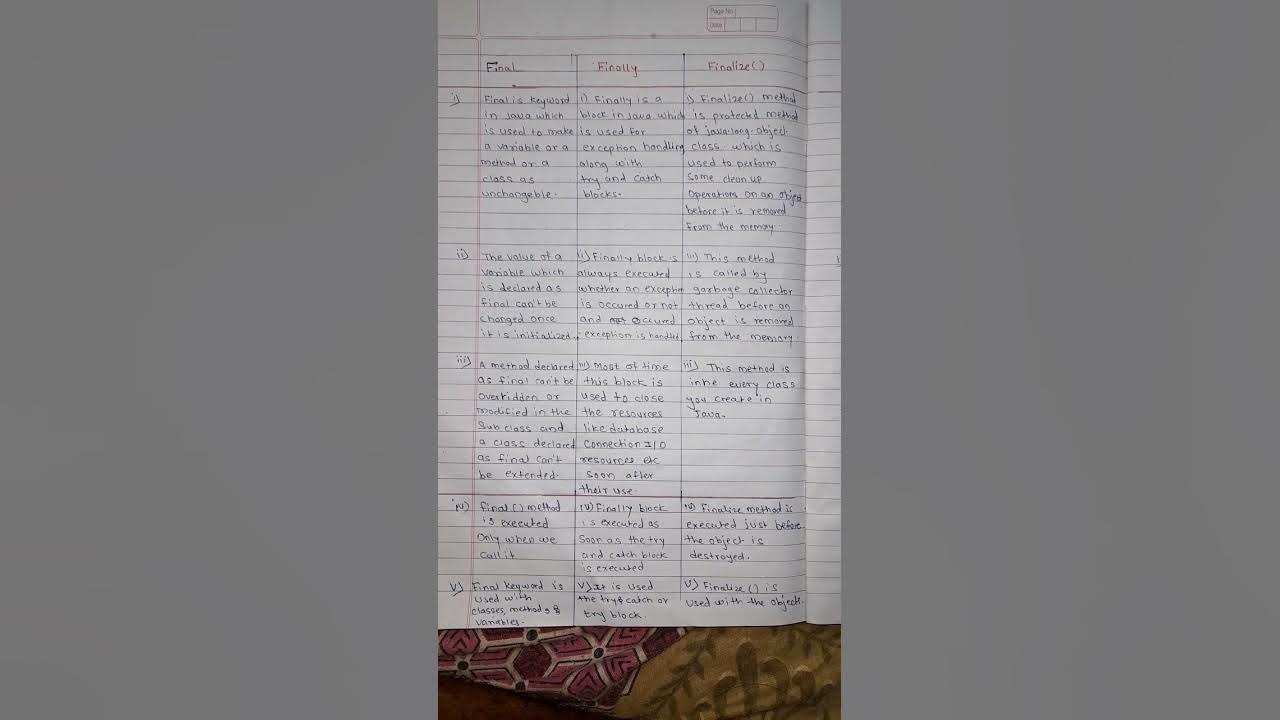 Page No
Date
Final
Finally
Finalize()
i) Final is keyword
in Java which
is used to make
a variable or a
method or a
class as
unchangeble.
i) Finally is a
block in Java which
is used for
exception handling
along with
try and catch
blocks.
i) Finalize() method
is protected method
of java.long.object
class which is
used to perform
Some clean up
Operations on an object
before it is removed
from the memory
ii) The value of a
variable which
is declared as
final can't be
changed once
it is initialized.
ii) Finally block is
always executed
whether an exception
is occured or not
and occured
exception is handled
iii) This method
is called by
garbage collector
thread before an
object is removed
from the memory.
iii) A method declared
as final can't be
overridden or
modified in the
Sub class and
a class declared
as final can't
be extended.
iii) Most of time
this block is
used to close
the resources
like database
Connection I/O
resources etc
soon after
their use.
iii) This method is
inhe every class
you create in
Java.
iv) final() method
is executed
Only when we
call it
iv) Finally block
is executed as
Soon as the try
and catch block
is executed
iv) Finalize method is
executed just before
the object is
destroyed.
v) Final keyword is
used with
classes, methods &
variables.
v) It is used
the try & catch or
try block.
v) Finalize() is
used with the object.